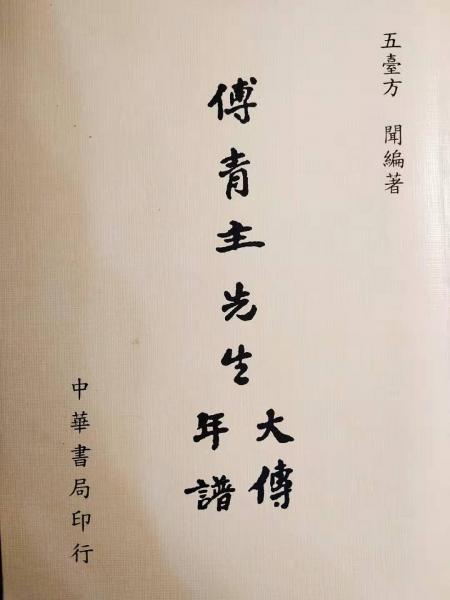 五臺方 聞編著
傅青主先生
大傳
年譜
中華書局印行